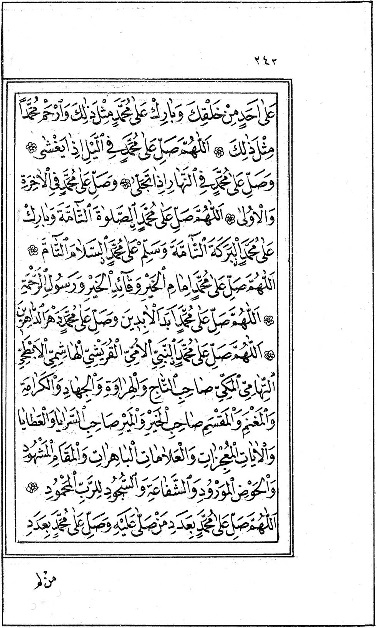 ٢٤٣
عَلَى أَحَدٍ مِنْ خَلْقِكَ وَبَارِكْ عَلَى مُحَمَّدٍ مِثْلَ ذٰلِكَ وَارْحَمْ مُحَمَّدًا
مِثْلَ ذٰلِكَ ۞ اَللّٰهُمَّ صَلِّ عَلَى مُحَمَّدٍ فِي الَّيْلِ إِذَا يَغْشَى ۞
وَصَلِّ عَلَى مُحَمَّدٍ فِي النَّهَارِ إِذَا تَجَلَّى ۞ وَصَلِّ عَلَى مُحَمَّدٍ فِي الْاٰخِرَةِ
وَالْأُولَى ۞ اَللّٰهُمَّ صَلِّ عَلَى مُحَمَّدٍ اَلصَّلٰوةَ التَّامَّةَ وَبَارِكْ
عَلَى مُحَمَّدٍ اَلْبَرَكَةَ التَّامَّةَ وَسَلِّمْ عَلَى مُحَمَّدٍ اَلسَّلَامَ التَّامَّ ۞
اَللّٰهُمَّ صَلِّ عَلَى مُحَمَّدٍ إِمَامِ الْخَيْرِ وَقَائِدِ الْخَيْرِ وَرَسُولِ الرَّحْمَةِ
۞ اَللّٰهُمَّ صَلِّ عَلَى مُحَمَّدٍ أَبَدَ الْاٰبِدِينَ وَصَلِّ عَلَى مُحَمَّدٍ دَهْرَ الدَّاهِرِينَ
۞ اَللّٰهُمَّ صَلِّ عَلَى مُحَمَّدٍ اَلنَّبِيِّ الْأُمِّيِّ الْقُرَيْشِيِّ الْهَاشِمِيِّ الْأَبْطَحِيِّ
التِّهَامِيِّ الْمَكِّيِّ صَاحِبِ التَّاجِ وَالْهِرَاوَةِ وَالْجِهَادِ وَالْكَرَامَةِ
وَالْمَغْنَمِ وَالْمَقْسَمِ صَاحِبِ الْخَيْرِ وَالْمَيْرِ صَاحِبِ السَّرَايَا وَالْعَطَايَا
وَالْاٰيَاتِ الْمُعْجِزَاتِ وَالْعَلَامَاتِ الْبَاهِرَاتِ وَالْمَقَامِ الْمَشْهُودِ
وَالْحَوْضِ الْمَوْرُودِ وَالشَّفَاعَةِ وَالسُّجُودِ لِلرَّبِّ الْمَحْمُودِ ۞
اَللّٰهُمَّ صَلِّ عَلَى مُحَمَّدٍ بِعَدَدِ مَنْ صَلَّى عَلَيْهِ وَصَلِّ عَلَى مُحَمَّدٍ بِعَدَدِ
مَنْ لَمْ